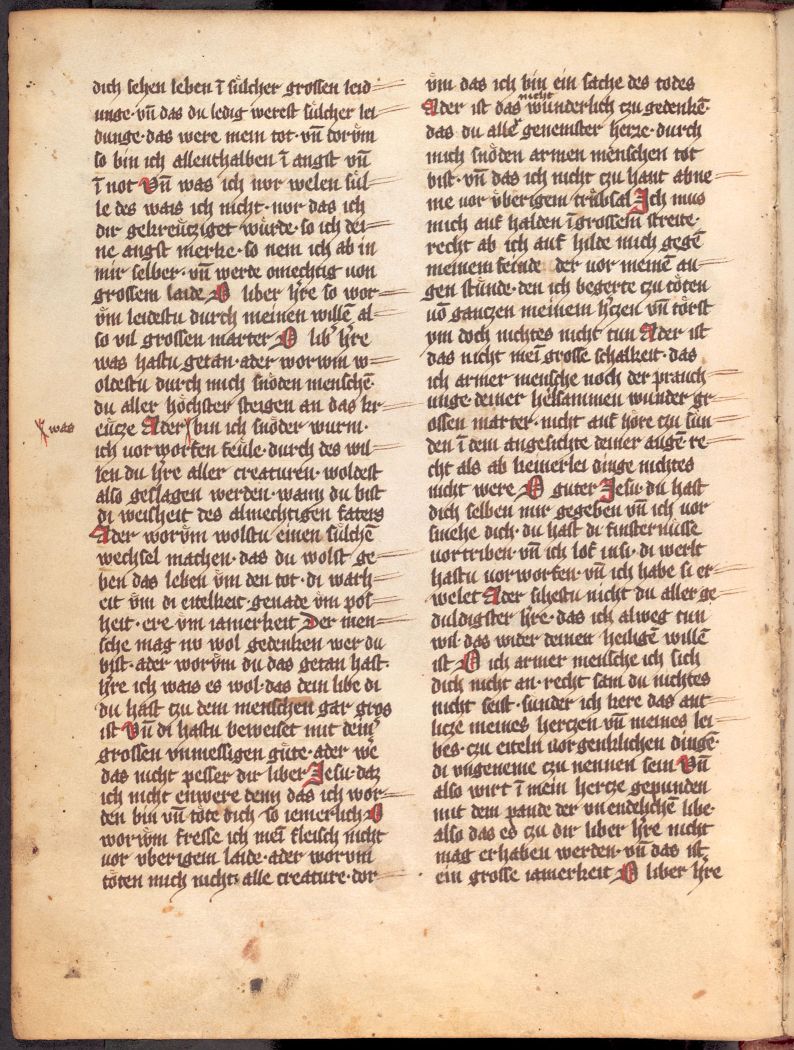 dich sehen leben ī sülcher grossen leid-
unge· vn̄ das du ledig werest sülcher lei
dunge· das were mein tot· vn̄ dorům
so bin ich allenthalben ī angst vn̄
ī not Vn̄ was ich nor welen sül-
le des wais ich nicht· nor das ich
dir gekreütziget würde· so ich dei-
ne angst merke· so nem ich ab in
mir selber· vn̄ werde omechtig uon
grossem laide O liber h're so wor-
vm leidestu durch meinen willē al-
so vil grossen marter O lib' h're
was hastu getan· ader worwm w-
oldestu durch mich snöden menschē·
du aller höchster steigen an das kr-
eütze Ader bin ich snöder wurm·
was
ich uorworfen feule· durch des wil-
len du h're aller creaturen· woldest
also geslagen werden· wann du bist
di weisheit des almechtigen faters
Ader worům wolstu einen sülchē
wechsel machen· das du wolst ge-
ben das leben vm den tot· di warh-
eit vm di eitelkeit· genade vm pos-
heit· ere vm iamerkeit Der men-
sche mag nv wol gedenken wer du
bist· ader worům du das getan hast·
h're ich wais es wol· das dein libe di
du hast czu dem menschen gar gros
ist Vn̄ di hastu beweiset mit dein'
grossen vnmessigen güte· ader wē
das nicht pesser dir liber Jesu· daz
ich nicht enwere denn das ich wor-
den bin vn̄ töte dich so iemerlich O
worwm fresse ich mei̅ fleisch nicht
uor vberigem laide· ader worvm
töten mich nicht alle creature· dor-
vm das ich bin ein sache des todes
nicht
Ader ist das wünderlich czu gedenkē
das du alle' genemster herze· durch
mich snöden armen menschen tot
bist· vn̄ das ich nicht czu hant abne-
me uor vberigem trübsal Ich mus
mich auf halden ī grossem streite·
recht ab ich auf hilde mich gegē
meinem feinde der uor meinē au-
gen stünde· den ich begerte czu töten
uō gantzen meinem h'czen vn̄ törst
vm doch nichtes nicht tun Ader ist
das nicht mei̅ grosse schalkeit· das
ich armer mensche noch der prauch-
unge deiner heilsammen wunder gr-
ossen marter· nicht auf höre czu sün-
den ī dem angesichte deiner augē re-
cht als ab keinerlei dinge nichtes
nicht were O guter Jesu· du hast
dich selben mir gegeben vn̄ ich uor
smehe dich· du hast di finsternüsse
uortriben· vn̄ ich lof in si· di werlt
hastu uorworfen· vn̄ ich habe si er-
welet Ader sihestu nicht du aller ge-
duldigster h're· das ich alweg tun
wil das wider deinen heiligē willē
ist O ich armer mensche ich sich
dich nicht an· recht sam du nichtes
nicht seist· sunder ich kere das ant-
licze meines herczen vn̄ meines lei-
bes· czu eiteln uorgenklichen dingē·
di vngeneme czu nennen sein Vn̄
also wirt ī mein hercze gepunden
mit dem pande der vnendelichē libe·
also das es czu dir liber h're nicht
mag erhaben werden· vn̄ das ist
ein grosse iamerkeit O liber h're